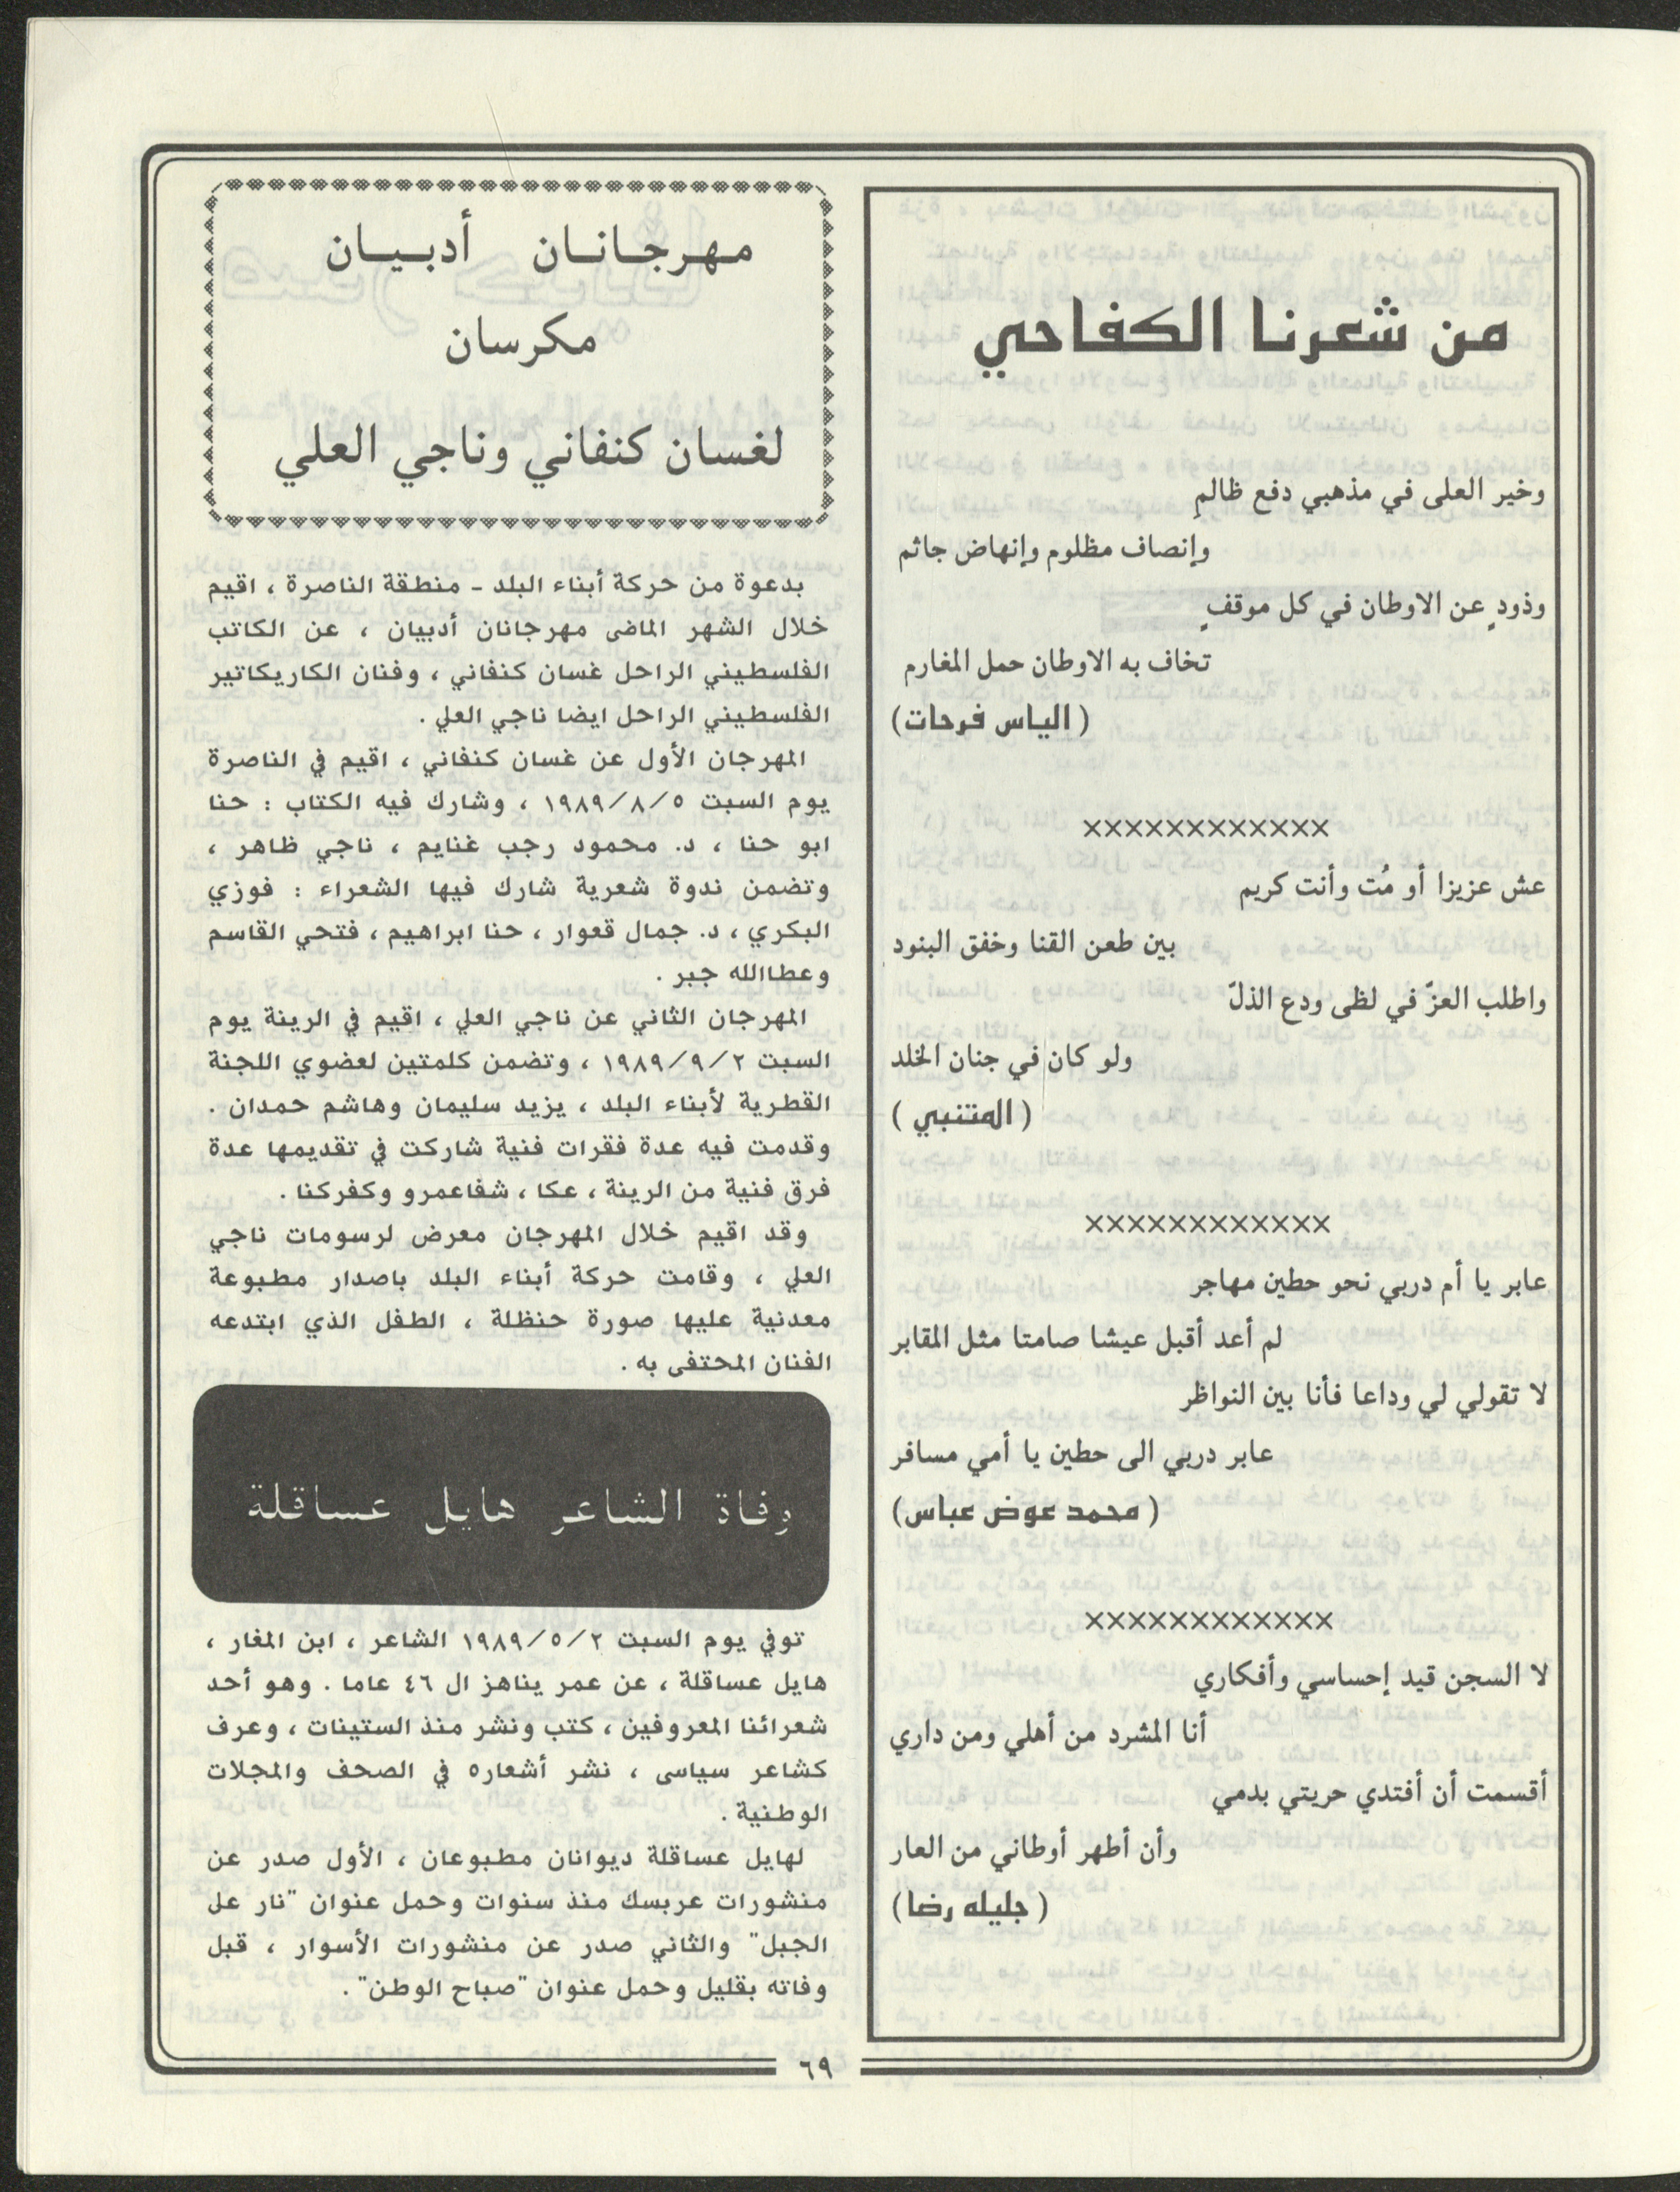 من شعرنا الكفاحي
وخير العلى في مذهبي دفع ظالمِ
وإنصاف مظلوم وإنهاض جاثم
وذودٍ عن الاوطان في كل موقفٍ
تخاف به الاوطان حمل المغارم
( الياس فرحات)
××××××××××××
عش عزيزا أو مُت وأنت كريم
بين طعن القنا وخفق البنود
واطلب العزّ في لظى ودع الذلّ
ولو كان في جنان الخلد
( المتنبي )
××××××××××××
عابر يا أم دربي نحو حطين مهاجر
لم أعد أقبل عيشا صامتا مثل المقابر
لا تقولي لي وداعا فأنا بين النواظر
عابر دربي الى حطين يا أمي مسافر
( محمد عوض عباس)
××××××××××××
لا السجن قيد إحساسي وأفكاري
أنا المشرد من أهلي ومن داري
أقسمت أن أفتدي حريتي بدمي
وأن أطهر أوطاني من العار
( جليله رضا)
مهرجانان أدبيان
مكرسان
لغسان كنفاني وناجي العلي
بدعوة من حركة أبناء البلد - منطقة الناصرة ، اقيم
خلال الشهر الماضى مهرجانان أدبيان ، عن الكاتب
الفلسطيني الراحل غسان كنفاني ، وفنان الكاريكاتير
الفلسطيني الراحل ايضا ناجي العلي .
المهرجان الأول عن غسان كنفاني ، اقيم في الناصرة
يوم السبت ١٩٨٩/٨/٥ ، وشارك فيه الكتاب : حنا
ابو حنا ، د. محمود رجب غنايم ، ناجي ظاهر ،
وتضمن ندوة شعرية شارك فيها الشعراء : فوزي
البكري ، د. جمال قعوار ، حنا ابراهيم ، فتحي القاسم
وعطاالله جبر .
المهرجان الثاني عن ناجي العلي ، اقيم في الرينة يوم
السبت ١٩٨٩/٩/٢ ، وتضمن كلمتين لعضوي اللجنة
القطرية لأبناء البلد ، يزيد سليمان وهاشم حمدان .
وقدمت فيه عدة فقرات فنية شاركت في تقديمها عدة
فرق فنية من الرينة ، عكا ، شفاعمرو وكفركنا .
وقد اقيم خلال المهرجان معرض لرسومات ناجي
العلي ، وقامت حركة أبناء البلد باصدار مطبوعة
معدنية عليها صورة حنظلة ، الطفل الذي ابتدعه
الفنان المحتفى به .
وفاة الشاعر هايل عساقلة
توفي يوم السبت ١٩٨٩/٥/٢ الشاعر ، ابن المغار ،
هايل عساقلة ، عن عمر يناهز ال ٤٦ عاما . وهو أحد
شعرائنا المعروفين ، كتب ونشر منذ الستينات ، وعرف
كشاعر سياسى ، نشر أشعاره في الصحف والمجلات
الوطنية .
لهايل عساقلة ديوانان مطبوعان ، الأول صدر عن
منشورات عربسك منذ سنوات وحمل عنوان "نار على
الجبل" والثاني صدر عن منشورات الأسوار ، قبل
وفاته بقليل وحمل عنوان "صباح الوطن" .
٦٩